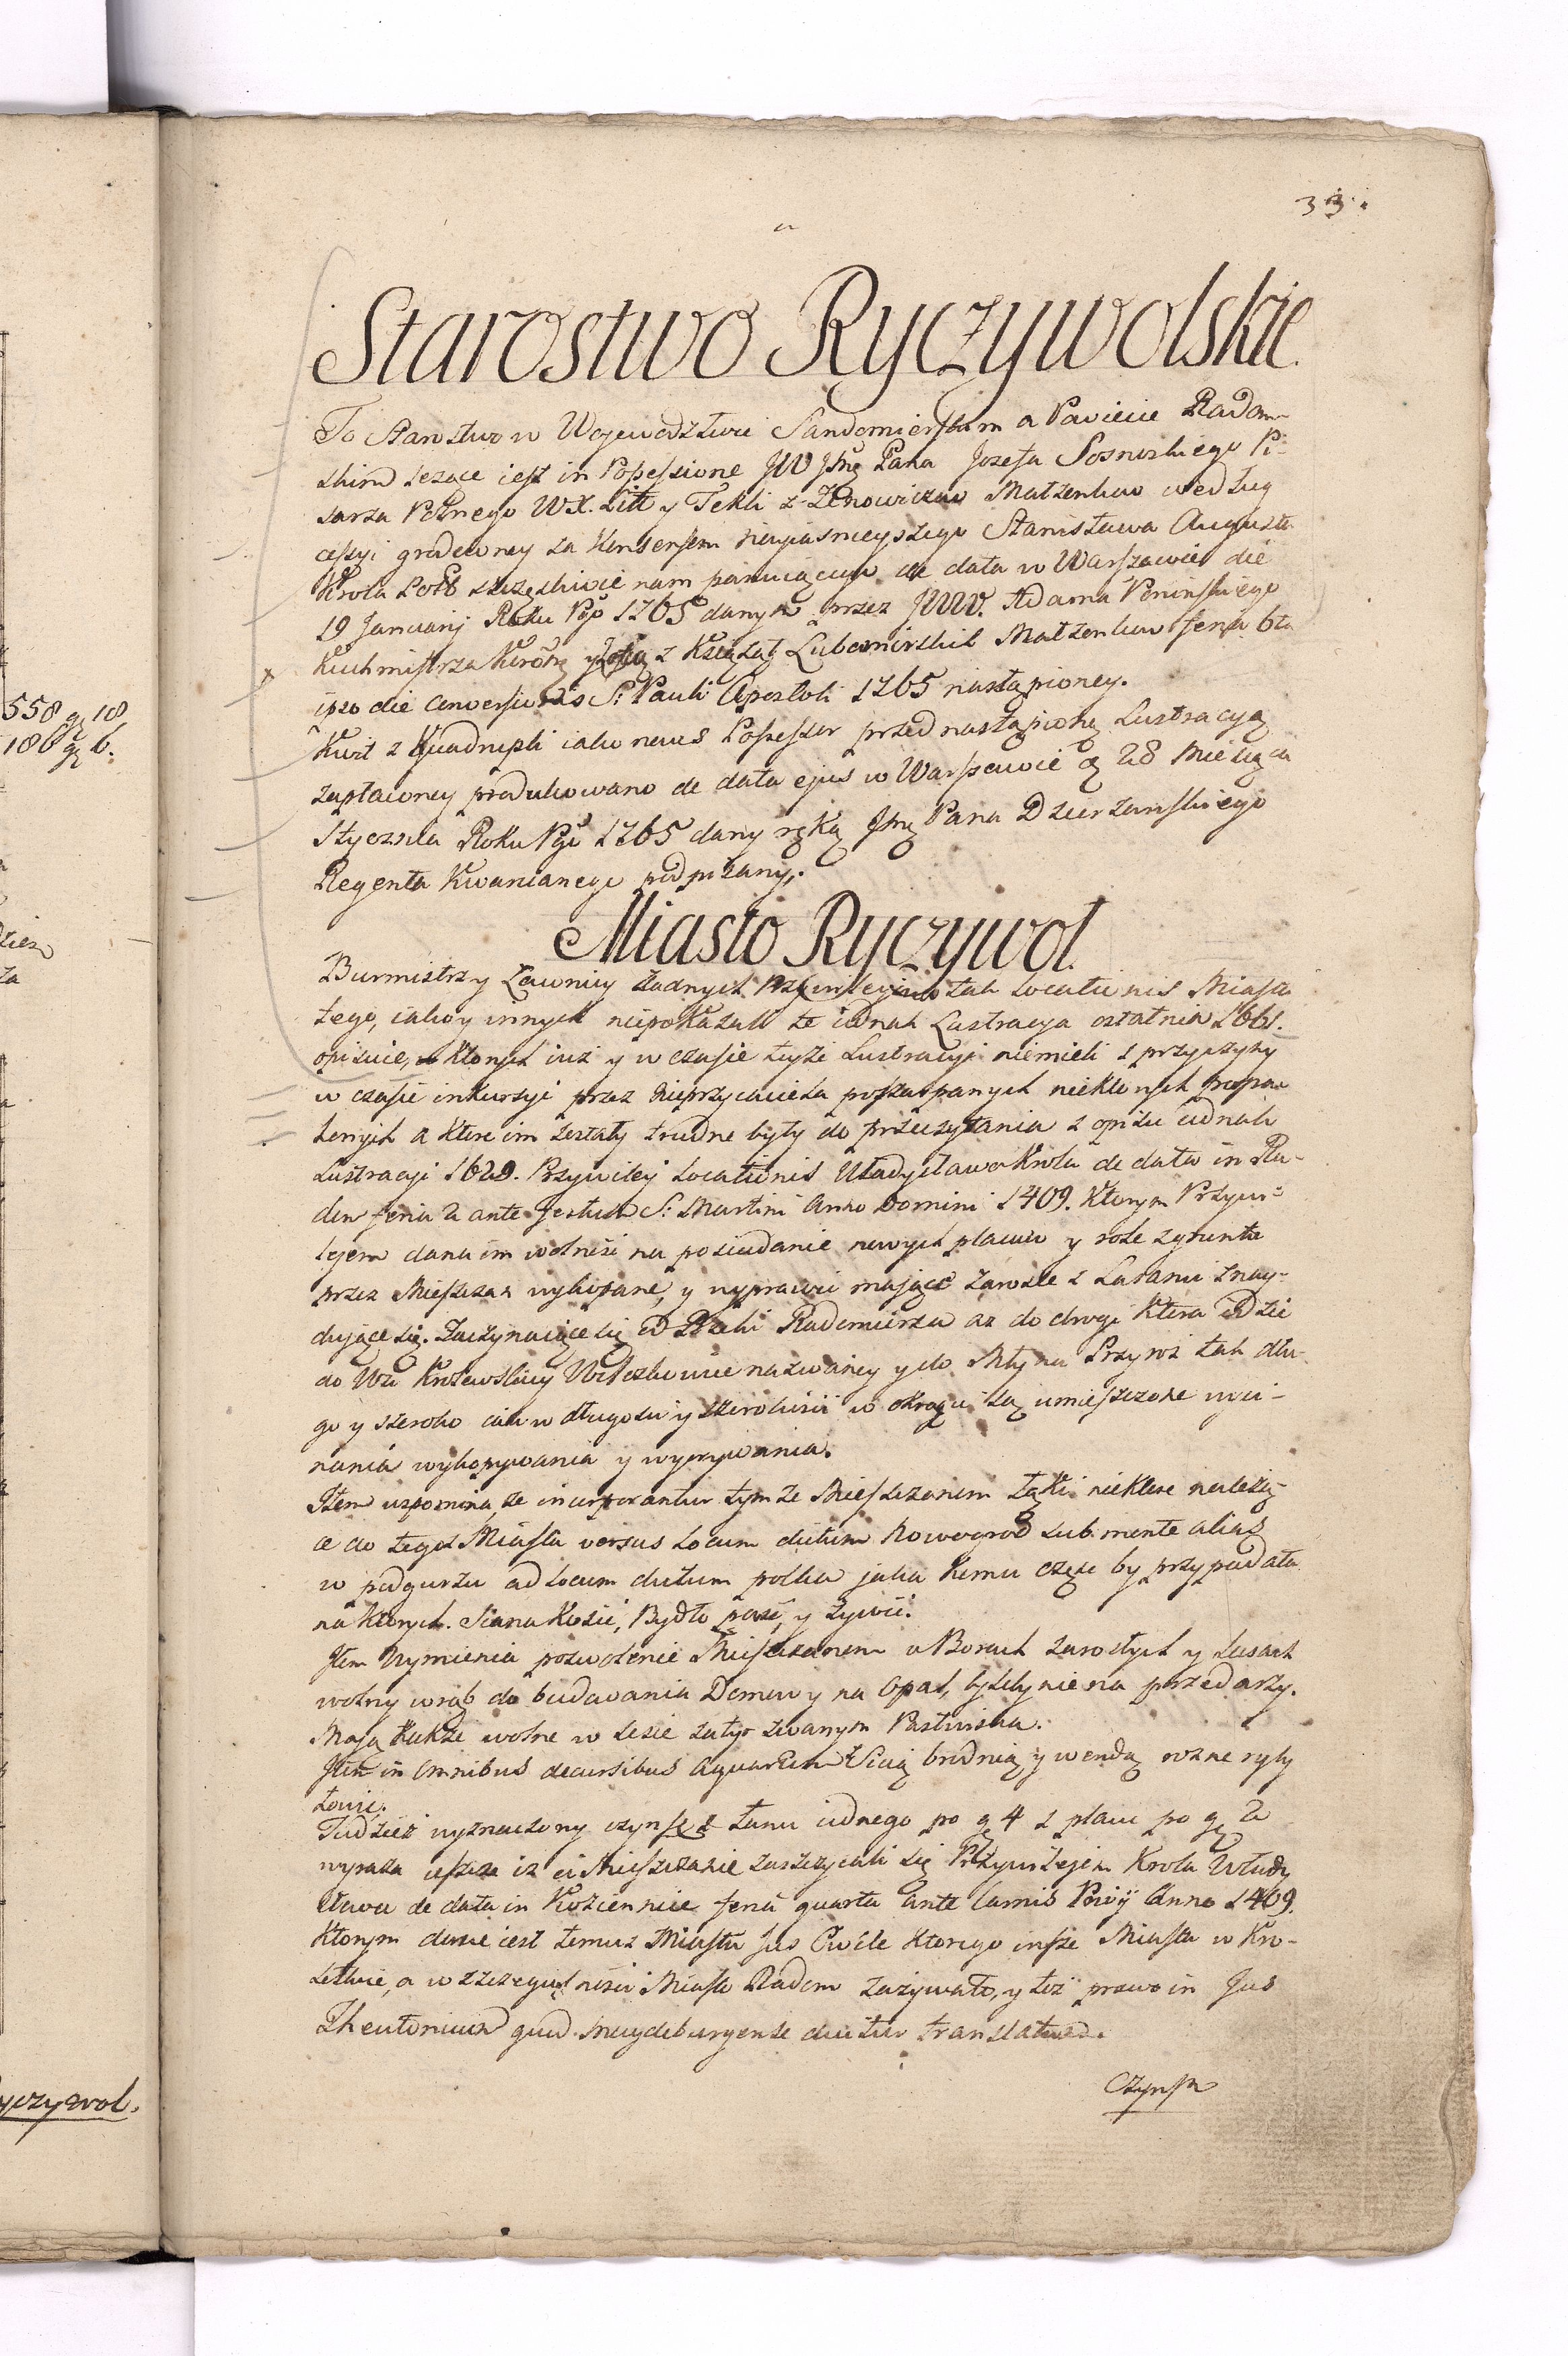 33.
Starostwo Ryczywolskie.
To Starostwo w Wojewodztwie Sandomierskim a Powiecie Radom-
skim lezące iest in Possessione JW Jmę Pana Jozefa Sosnoskiego Pi-
sarza Polnego W.X. Litt y Tekli z Zenowiczow Małzenkow według
cessyi grodowney za Konsensem nayiasnieyszego Stanisława Augusta
Krola Polł szczęsliwie nam panuiącego de data w Warszawie die
19 Januarij Roku Pgo 1765 danym przez JWW. Adama Poninskiego
Kuchmistrza Koroñę y Zofią z Książąt Lubomirskich Małzenkow feria 6ta
ipso die conversionis S: Pauli Apostoli 1765 nastąpioney.
Kwit z Quadrupli iako novus Possessor przed nastąpioną Lustracyą
zapłaconey produkowano de data ejus w Warszawie d 28 Miesiąca
Stycznia Roku Pgo 1765 dany ręką Jmę Pana Dzierzanskiego
Regenta Kwarcianego podpisany.
Miasto Ryczywol.
Burmistrz y Ławnicy zadnych Przywileiow tak Locationis Miasta
tego, iako y innych niepokazali ze iednak Lustracya ostatnia 1661.
opisuie, ktorych iuż y w czasie teyże Lustracyi niemieli z przyczyny
w czasie inkursyi przez Nieprzyiaciela poszarpanych niektorych popa-
lonych a ktore im zostały trudne były do przeczytania z opisu iednak
Lustracyi 1629. Przywiley Locationis Władysława Krola de data in Ra-
dom feria 2 ante festum S: Martini Anno Domini 1409. Ktorym Przywi-
lejem dana im wolność na posiadanie nowych placow y role z gruntu
przez Mieszczan wykopane, y wyprawić mające zarosle z Lasami znay-
dujące się. Zaczynaiące się od Rzeki Radomirza az do drogi ktora idzie
do Wsi Krolewskiey nazwaney y do Młyna Przyroż tak dłu-
go y szeroko iak w długosci y szerokosci w okręgu są umieszczone wyci-
nania wykopywania y wyorywania.
Item wspomina, ze incorporantur tymze Mieszczanom Łąki niektore należą-
ce do tegoż Miasta versus Locum dictum Nowogrod sub monte alias
w podgurzu ad Locum dictum polka jaka komu część by przypadała
na ktorych. Siana Kosić, Bydło paść, y żywić.
Item Wymienia pozwolenie Mieszczanom w Borach zarosłych y Lasach
wolny wrąb do budowania Domow y na Opał, byleby nie na przedarzy.
Mają także wolne w Lesie Załyż zwanym Pastwiska.
Item in Omnibus decursibus Aquarum Siecią brodnią, y wendą rozne ryby
Łowić.
Tudzież wyznaczony czynsz z Łanu iednego po gę 4 z placu po gę 2
wyraża ieszcze iz ci Mieszczanie zaszczycali się Przywilejem Krola Włady
sława de data in Koziennice feria quarta ante Carnis Privij Anno 1409.
Ktorym dane iest temuz Miastu Jus Civile ktorego insze Miasta w Kro-
lestwie, a w szczegulności Miasto Radom zażywało, y też prawo in Jus
Theutonicum quod Maydeburgense dicitur translatum.
Czynsz
558 gę 18.
186 gę 6.
yczywol.